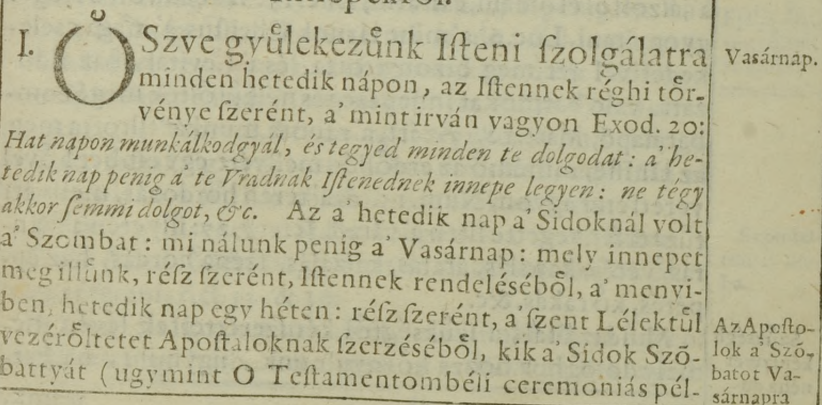 I. OͤSzve gyuͤlekezuͤnk Iſteni ſzolgálatra
Vasárnap.
minden hetedik nápon, az Iſtennek réghi toͤr-
vénye ſzerént, a' mint irván vagyon Exod. 20:
Hat napon munkálkodgyál, és tegyed minden te dolgodat: a' he-
tedik nap penig a' te Vradnak Iſtenednek innepe legyen: ne tégy
akkor ſemmi dolgot, &c. Az a' hetedik nap a' Sidoknál volt
a' Szombat: mi nálunk penig a' Vasárnap: mely innepet
meg illuͤnk, réſz ſzerént, Iſtennek rendeléséboͤl, a' menyi-
ben, hetedik nap egy héten: réſz ſzerént, a' ſzent Lélektuͤl
vezéroͤltetet Apoſtaloknak ſzerzéséboͤl, kik a' Sidok Szō-
battyát (ugymint O Teſtamentombéli ceremoniás pél-
Az Apoſto-
lok a' Szō-
batot Va-
sárnapra